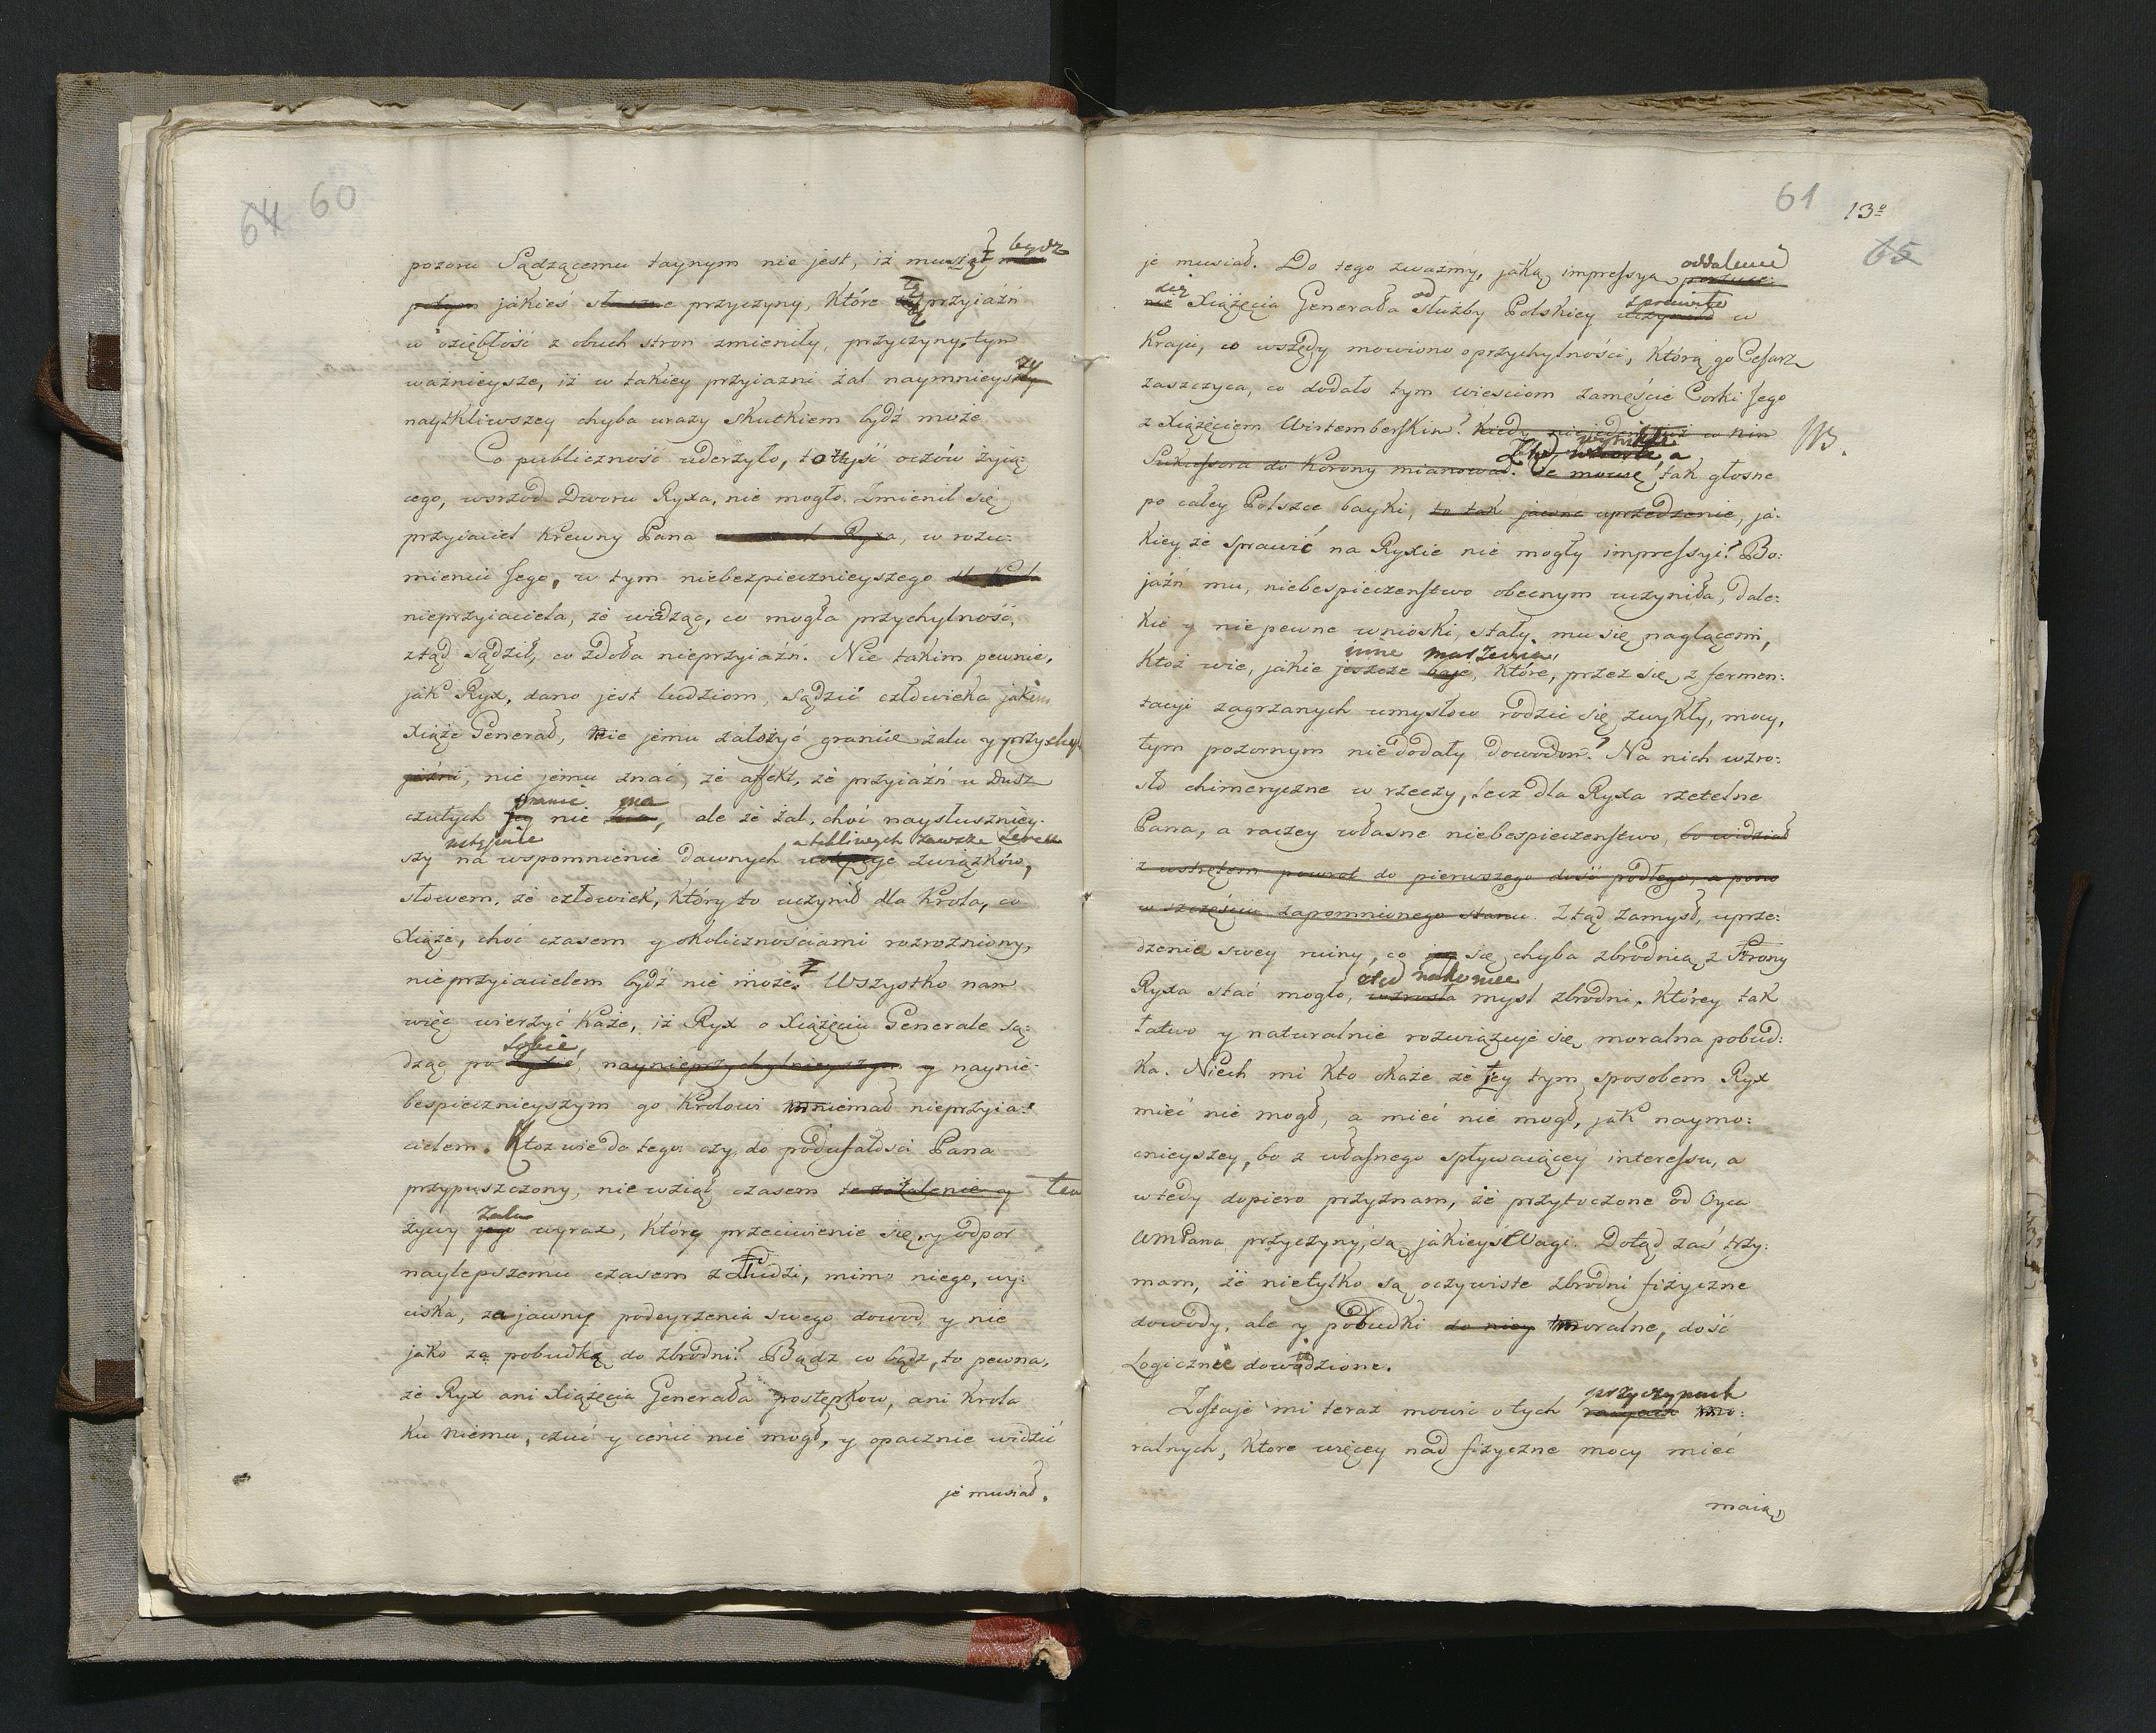 64 60
pozoru Sądzącemu taynym nie jest, iż musiał bydź
jakieś przyczyny, które tę przyiaźń
w oziębłość z obuch stron zmieniły, przyczyny tym
ważnieysze, iż w takiey przyiazni żal naymnieyszy
naytkliwszey chyba urazy skutkiem bydź może
Co publiczność uderzyło, to tysić oczów żyią:
cego, wsrzod Dworu Ryxa, nie mogło. Zmienił się
przyiaciel Krewny Pana w oczach Ryxa, w rozu:
mieniu Jego, w tym niebezpiecznieyszego
nieprzyiaciela, że widząc, co mogła przychylność,
ztąd sądził, co zdoła nieprzyiaźń. Nie takim pewnie,
jak Ryx, dano jest ludziom, sądzić człowieka jakim
Xiąże Generał, nie jemu założyć granice żalu y przychyl
jaźni, nie jemu znać, że affekt, że przyiaźń u dusz
granic ma
czułych jey nie zna, ale że żal, choć naysłuszniey:
ustępuie a tkliwych zawsze serce
szy na wspomnienie dawnych ustępuje związków,
słowem, że człowiek, który to uczynił dla Krola, co
Xiąże, choć czasem y okolicznościami rozrozniony,
nieprzyiacielem bydź nie może? Wszystko nam
więc wierzyć każe, iż Ryx o Xiążęciu Generale są:
sobie
dząc po Ryxie, naynieprzychylnieyszym y naynie:
bespiecznieyszym go Krolowi mniemał nieprzyia:
cielem. Ktoz wie do tego czy, do podufałości Pana
przypuszczony, niewziął czasem te zażalenie y ten
żalu
żywy jego wyraz, który przeciwienie się, y odpor
naylepszemu czasem z Ludzi, mimo niego, wy:
ciska, za jawny podeyrzenia swego dowod, y nie
jako za pobudkę do zbrodni? Bądz co bądz, to pewna,
że Ryx ani Xiążęcia Generała postępkow, ani Krola
ku niemu, czuć y cenić nie mogł, y opacznie widzieć
je musiał.
61 13º
65
oddalenie
je musiał. Do tego zważmy, jaką impressya porzuce:
się od sprawiło
nie Xiążęcia Generała służby Polskiey uczyniło w
Kraju, co wszędy mowiono o przychylności, którą go Cesarz
zaszczyca, co dodało tym wiesciom zamęście Corki Jego
z Xiążęciem Wirtemberskim? Kiedy nie jeden już w nim
NB.
Sukcessora do Korony mianował. Ztąd wynikłe a tak głosne
po całey Polszce bayki, to tak jawne uprzedzenie, ja:
kiey że sprawić na Ryxie nie mogły impressyi? Bo:
jaźń mu, niebespieczenstwo obecnym uczyniła, dale:
kie y niepewne wnioski, stały mu się naglącemi,
inne marzenia,
Ktoż wie, jakie jeszcze baje, które, przez się, z fermen:
tacyi zagrzanych umysłow rodzić się zwykły, mocy,
tym pozornym niedodały dowodom? Na nich wzro:
sło chimeryczne w rzeczy, lecz dla Ryxa rzetelne
Pana, a raczey własne niebespieczenstwo, bo widział
z wstrętem powrot do pierwszego dość podłego, a pono
w szczęściu zapomnionego stanu. Ztąd zamysł, uprze:
dzenia swey ruiny, co się chyba zbrodnią z Strony
ztąd nakoniec
Ryxa stać mogło, wzrosła mysl zbrodni, którey tak
łatwo y naturalnie rozwiązuje się, moralna pobud:
ka. Niech mi kto okaże że jey tym sposobem Ryx
mieć nie mogł, a mieć nie mogł, jak naymo:
cnieyszey, bo z własnego spływaiącey interessu, a
wtedy dopiero przyznam, że przytoczone od Oyca
WMPana przyczyny, są jakieyś Wagi. Dotąd zaś trzy:
mam, że nietylko są oczywiste zbrodni fizyczne
dowody, ale y pobudki do niey moralne, dość
Logicznie dowodzione.
przyczynach
Zostaje mi teraz mowić o tych racyach mo:
ralnych, ktore więcey nad fizyczne mocy mieć
maią